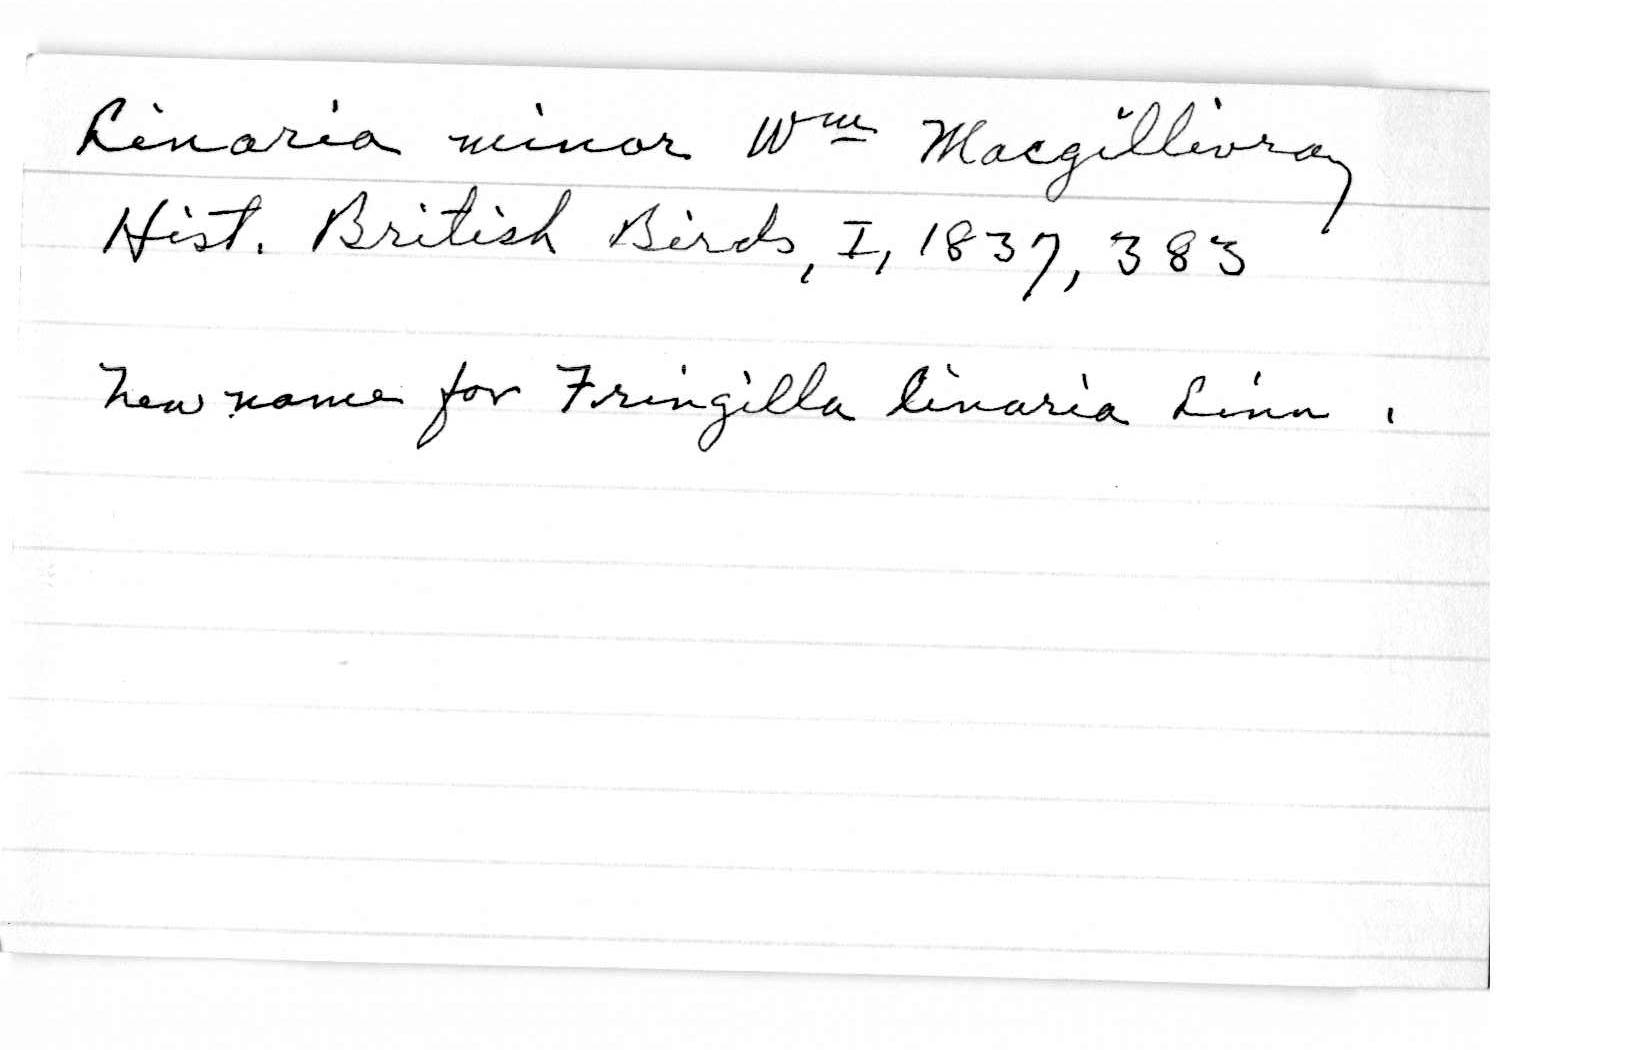 Linaria minor Wm Macgillivray
Hist. British Birds, I, 1837, 383
New name for Fringilla linaria Linn.